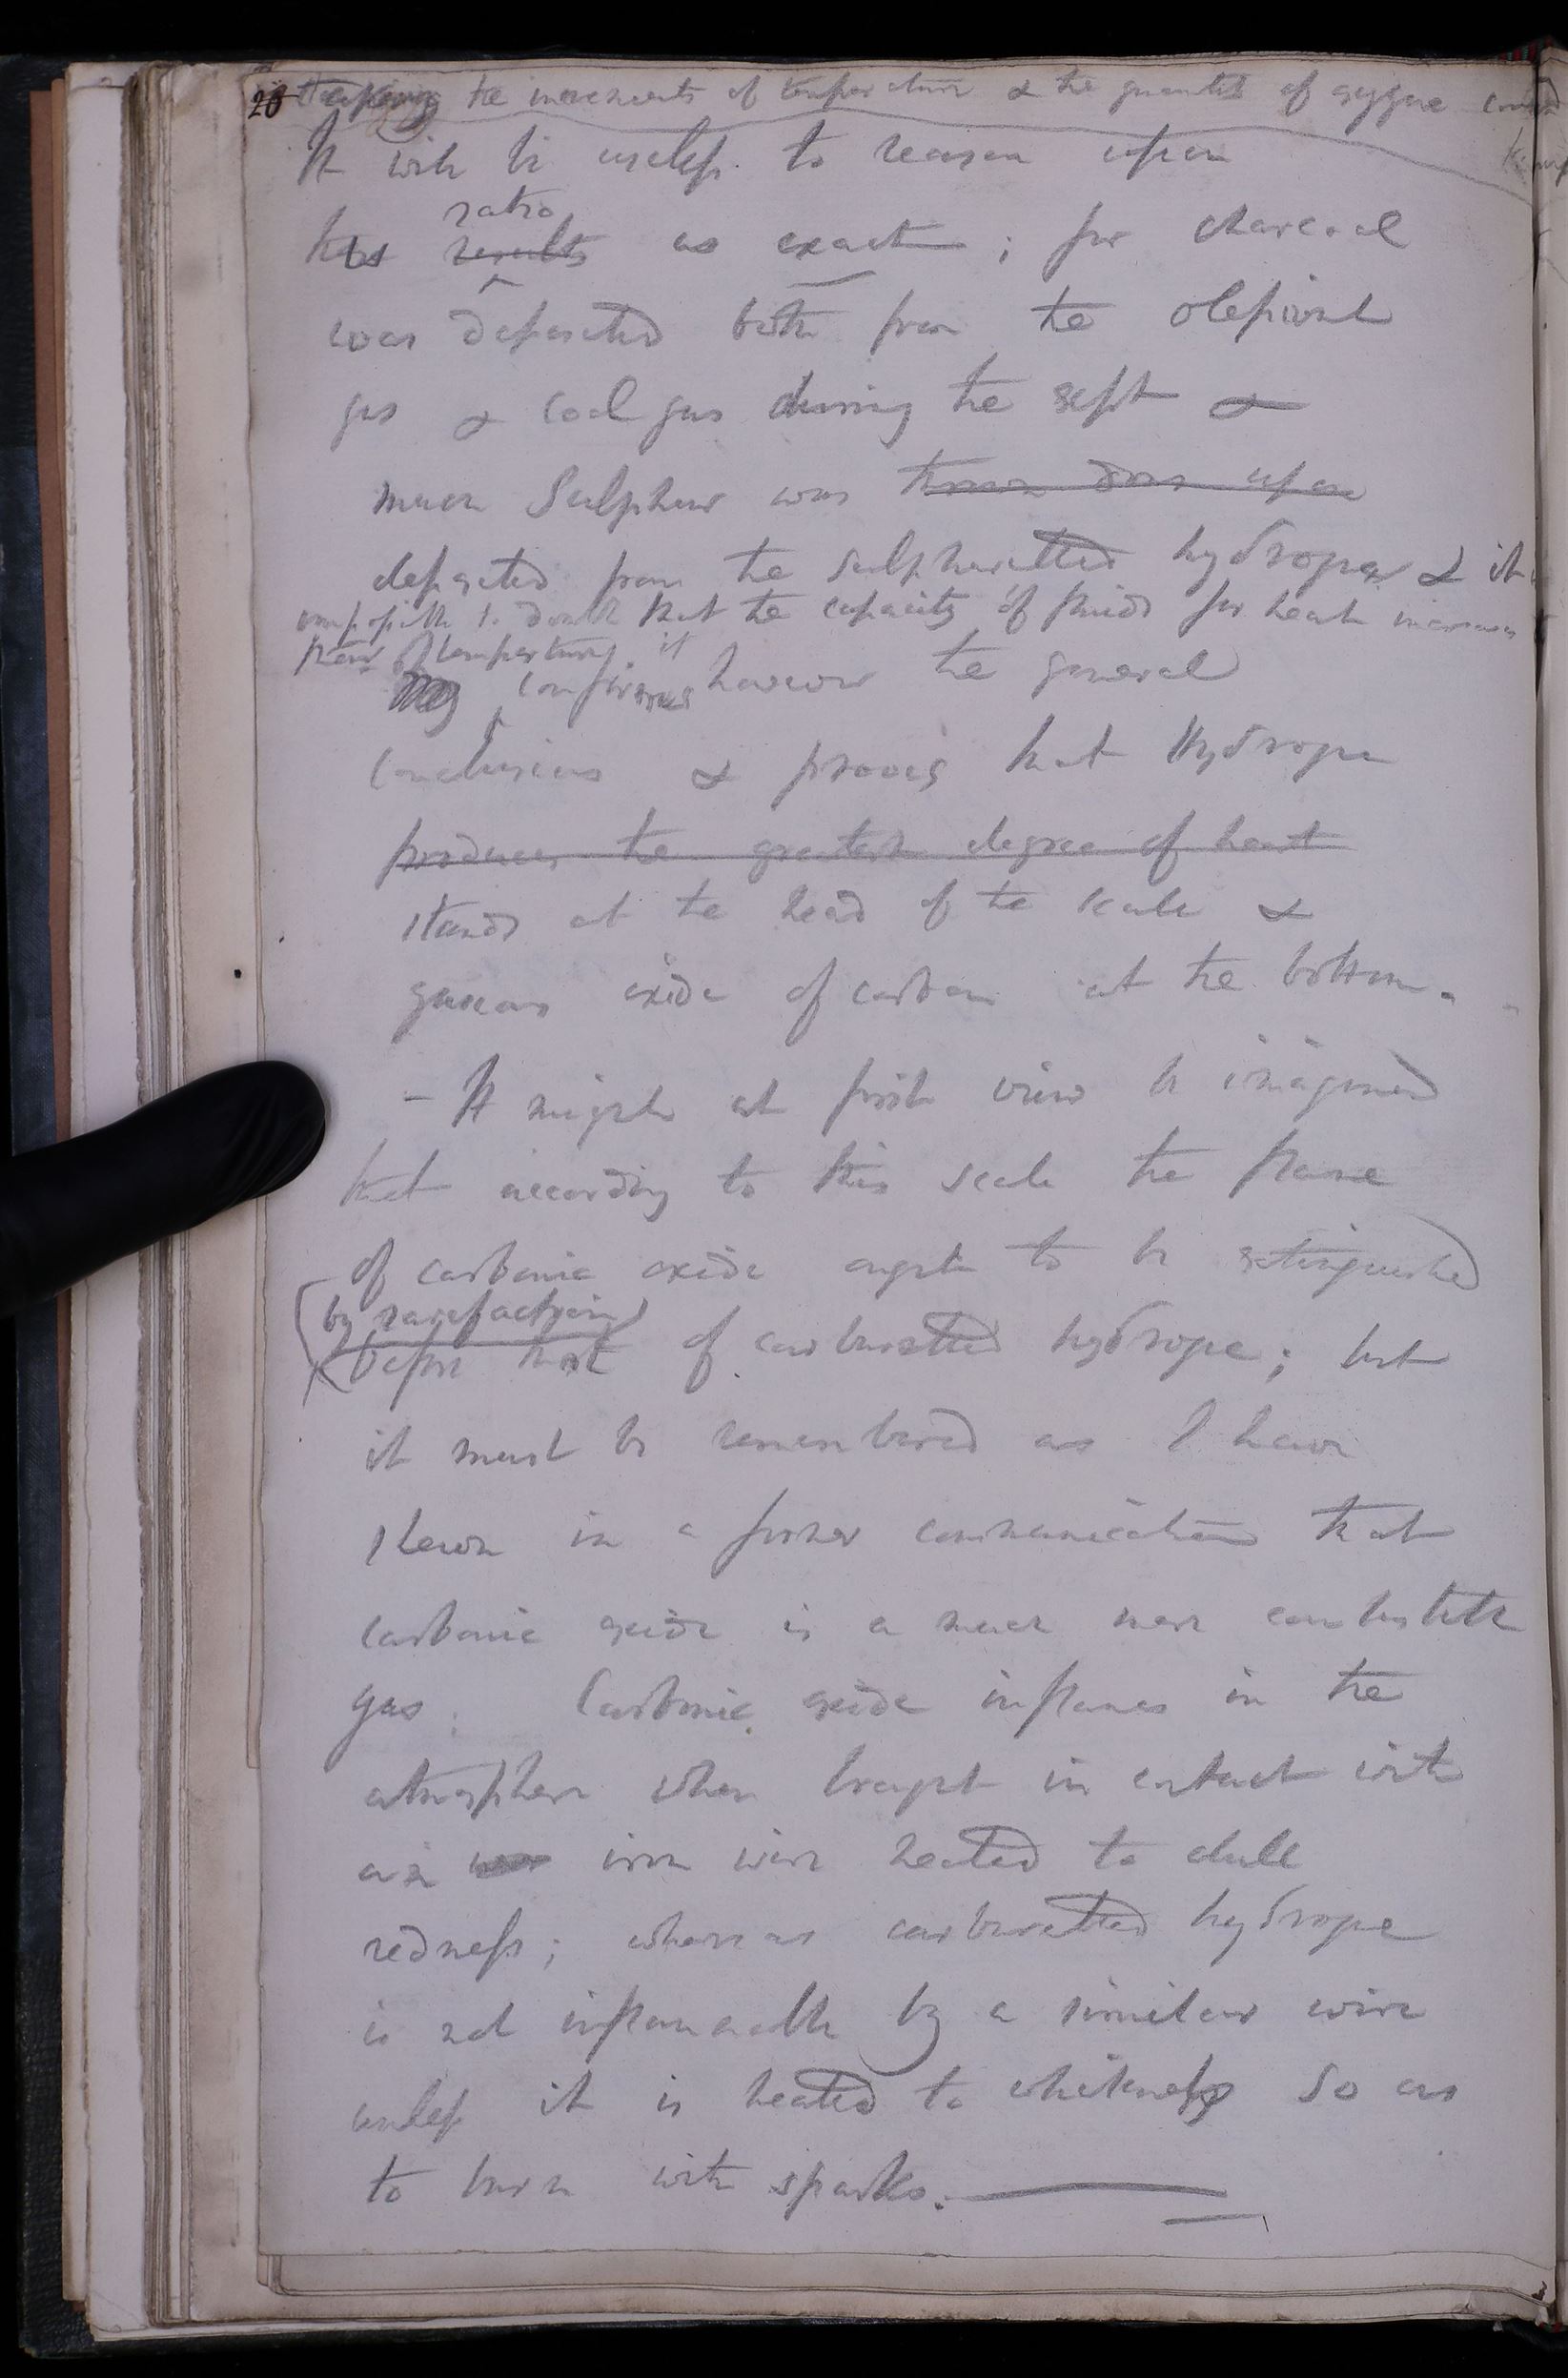 20 taking the increments of temperature & the quantities of oxygene
It will be useless to reason upon
ratio
this results as exact ; for charcoal
was deposited both from the olefiant
gas & coal gas during the expt &
much Sulphur was thrown down upon
deposited from the sulphuretted hydrogen & it is
impossible to doubt that the capacity of fluids for heat increases
their temperature. it
confirms however the general
Conclusions & proves that Hydrogen
produces the greatest degree of heat
stands at the head of the scale &
gaseous oxide of carbon at the bottom.
- It might at first view be imagined
that according to this scale the flame
of carbonic oxide ought to be extinguished
(by rarefaction)
before that of carburetted hydrogen; but
it must be remembered as I have
shewn in a former communication that
carbonic oxide is a much more combustible
gas. Carbonic oxide inflames in the
atmosphere when brought in contact with
an iron wire heated to dull
redness; whereas carburetted hydrogen
is not inflammable by a similar wire
unless it is heated to whiteness so as
to burn with sparks.